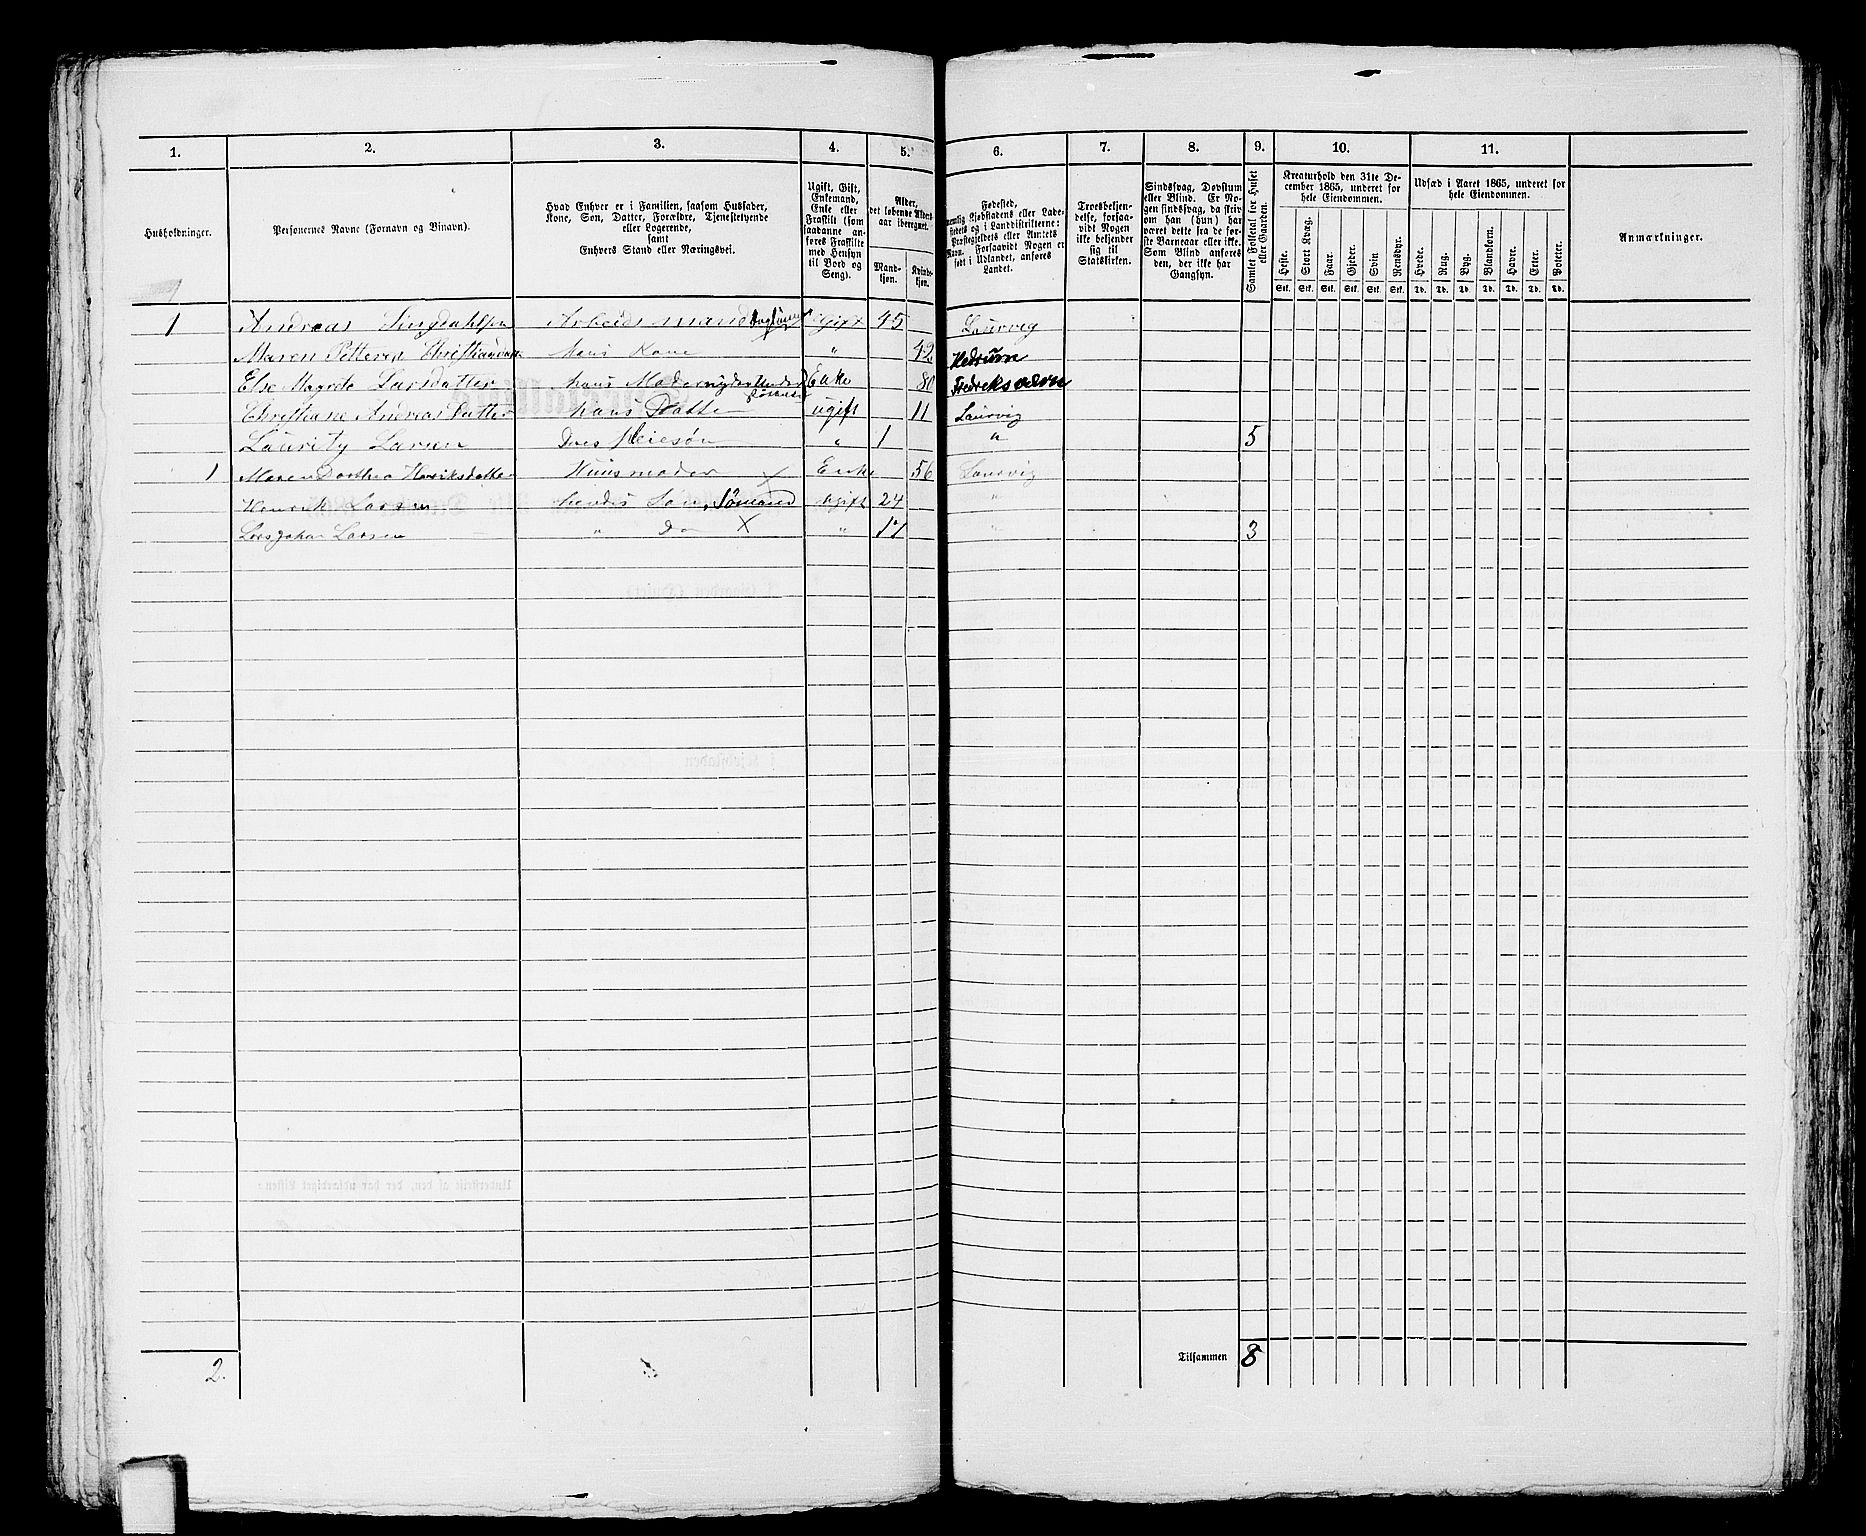 1. 2. 3. 4. 5. 6. 7. 8. 9. 10. 11.
Husholdninger.
Personernes Navne (Fornavn og Binavn).
Hvad Enhver er i Familien, saasom Husfader,
Kone, Søn, Datter, Forældre, Tjenestetyende
eller Logerende,
samt
Enhvers Stand eller Næringsvei.
Ugift, Gift,
Enkemand,
Enke eller
Fraskilt (som
saadanne an-
føres Fraskilte
med Hensyn
til Bord og
Seng).
Alder,
det løbende Alders-
aar iberegnet.
Mand-
kjøn.
Kvinde-
kjøn.
Fødested,
nemlig Kjøbstadens eller Lade-
stedets og i Landdistrikterne:
Præstegjeldets eller Amtets
Navn. Forsaavidt Nogen er
født i Udlandet, anføres
Landet.
Troesbekjen-
delse, forsaa-
vidt Nogen
ikke bekjender
sig til
Statskirken.
Sindssvag, Døvstum
eller Blind. Er No-
gen sindssvag, da skriv
om han (hun) har
været dette fra de før-
ste Barneaar eller ikke.
Som Blind anføres
den, der ikke har
Gangsyn.
Samlet Folketal for Huset
eller Gaarden.
Kreaturhold den 31te De-
cember 1865, underet for
hele Eiendommen.
Heste. Stort Kvæg. Faar. Gjeder. Svin Rensdyr.
Stk. Stk. Stk. Stk. Stk. Stk.
Udsæd i Aaret 1865, underet for
hele Eiendommen.
Hvede. Rug. Byg. Blandkorn. Havre. Erter. Poteter.
Td. Td. Td. Td. Td. Td. Td.
Anmærkninger.
1 Andreas Singdahlsen Arbeids mand Gift 45 Laurvig
Maren Hans Kone " 42 Hedrum
Else Magrete Larsdatter hans Moder Enke 80 Fredriksværn
Christiane Andreas Datter hans Datter ugift 11 Laurvig
Lauritz Larsen " 1 " 5
1 Maren Dorthea Henriksdatter Huusmoder Enke 56 Laurvig
Henrik Larsen hendes Søn, Sømand ugift 24 "
Lars Johan Larsen " Do " 17 " 3
Tilsammen 8
2.